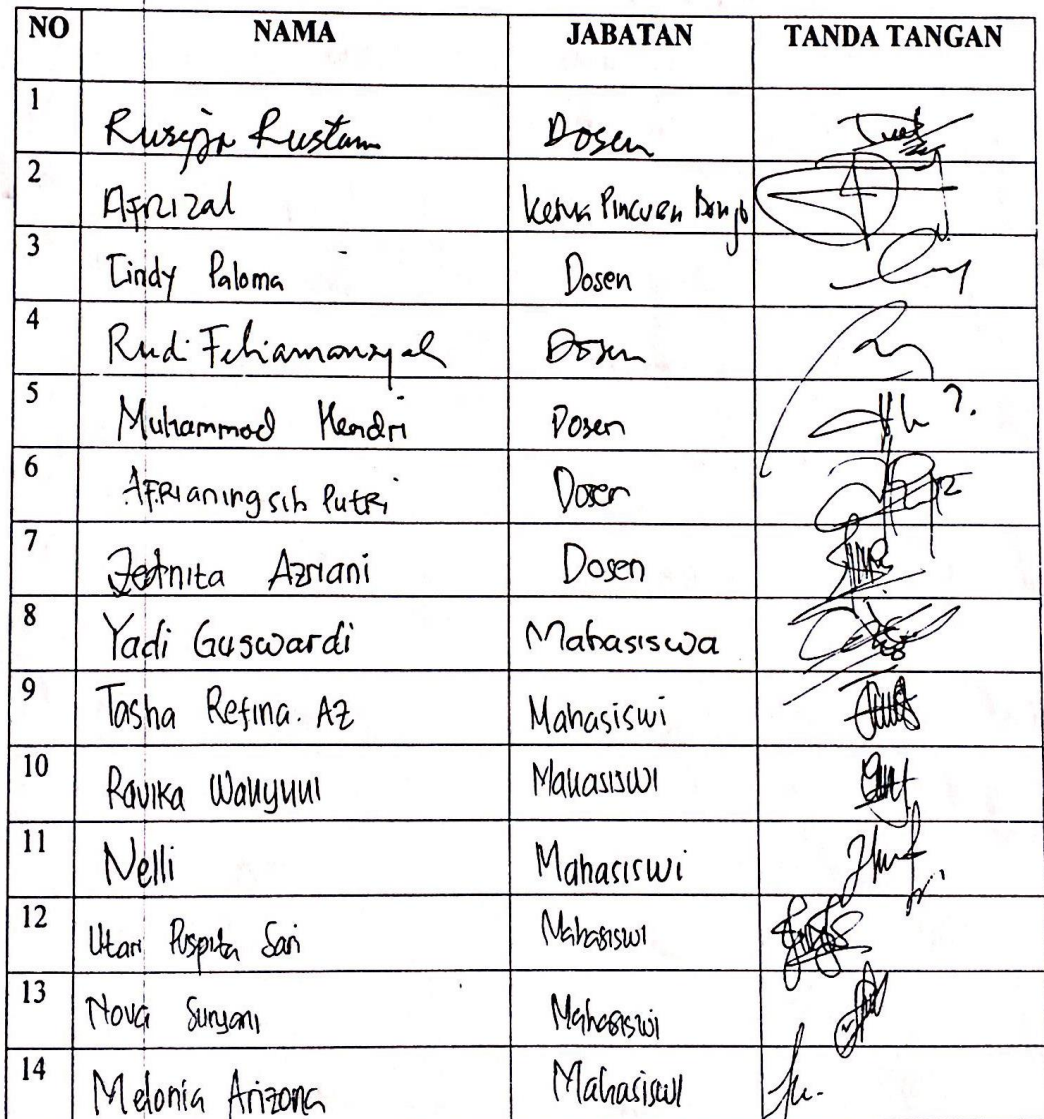 NO NAMA JABATAN TANDA TANGAN
1 Rustam Dosen
2 Afrizal Ketua Pincuran Bonjo
3 Cindy Paloma Dosen
4 Rudi Febriamansyah Dosen
5 Muhammad Hendri Dosen
6 Afrianingsih Putri Dosen
7 Zednita Azriani Dosen
8 Yadi Guswardi Mahasiswa
9 Tasha Refina. AZ Mahasiswi
10 Ravika Wahyuni Mahasiswi
11 Nelli Mahasiswi
12 Utari Puspita Sari Mahasiswi
13 Nova Suryani Mahasiswi
14 Melonia Arizona Mahasiswi